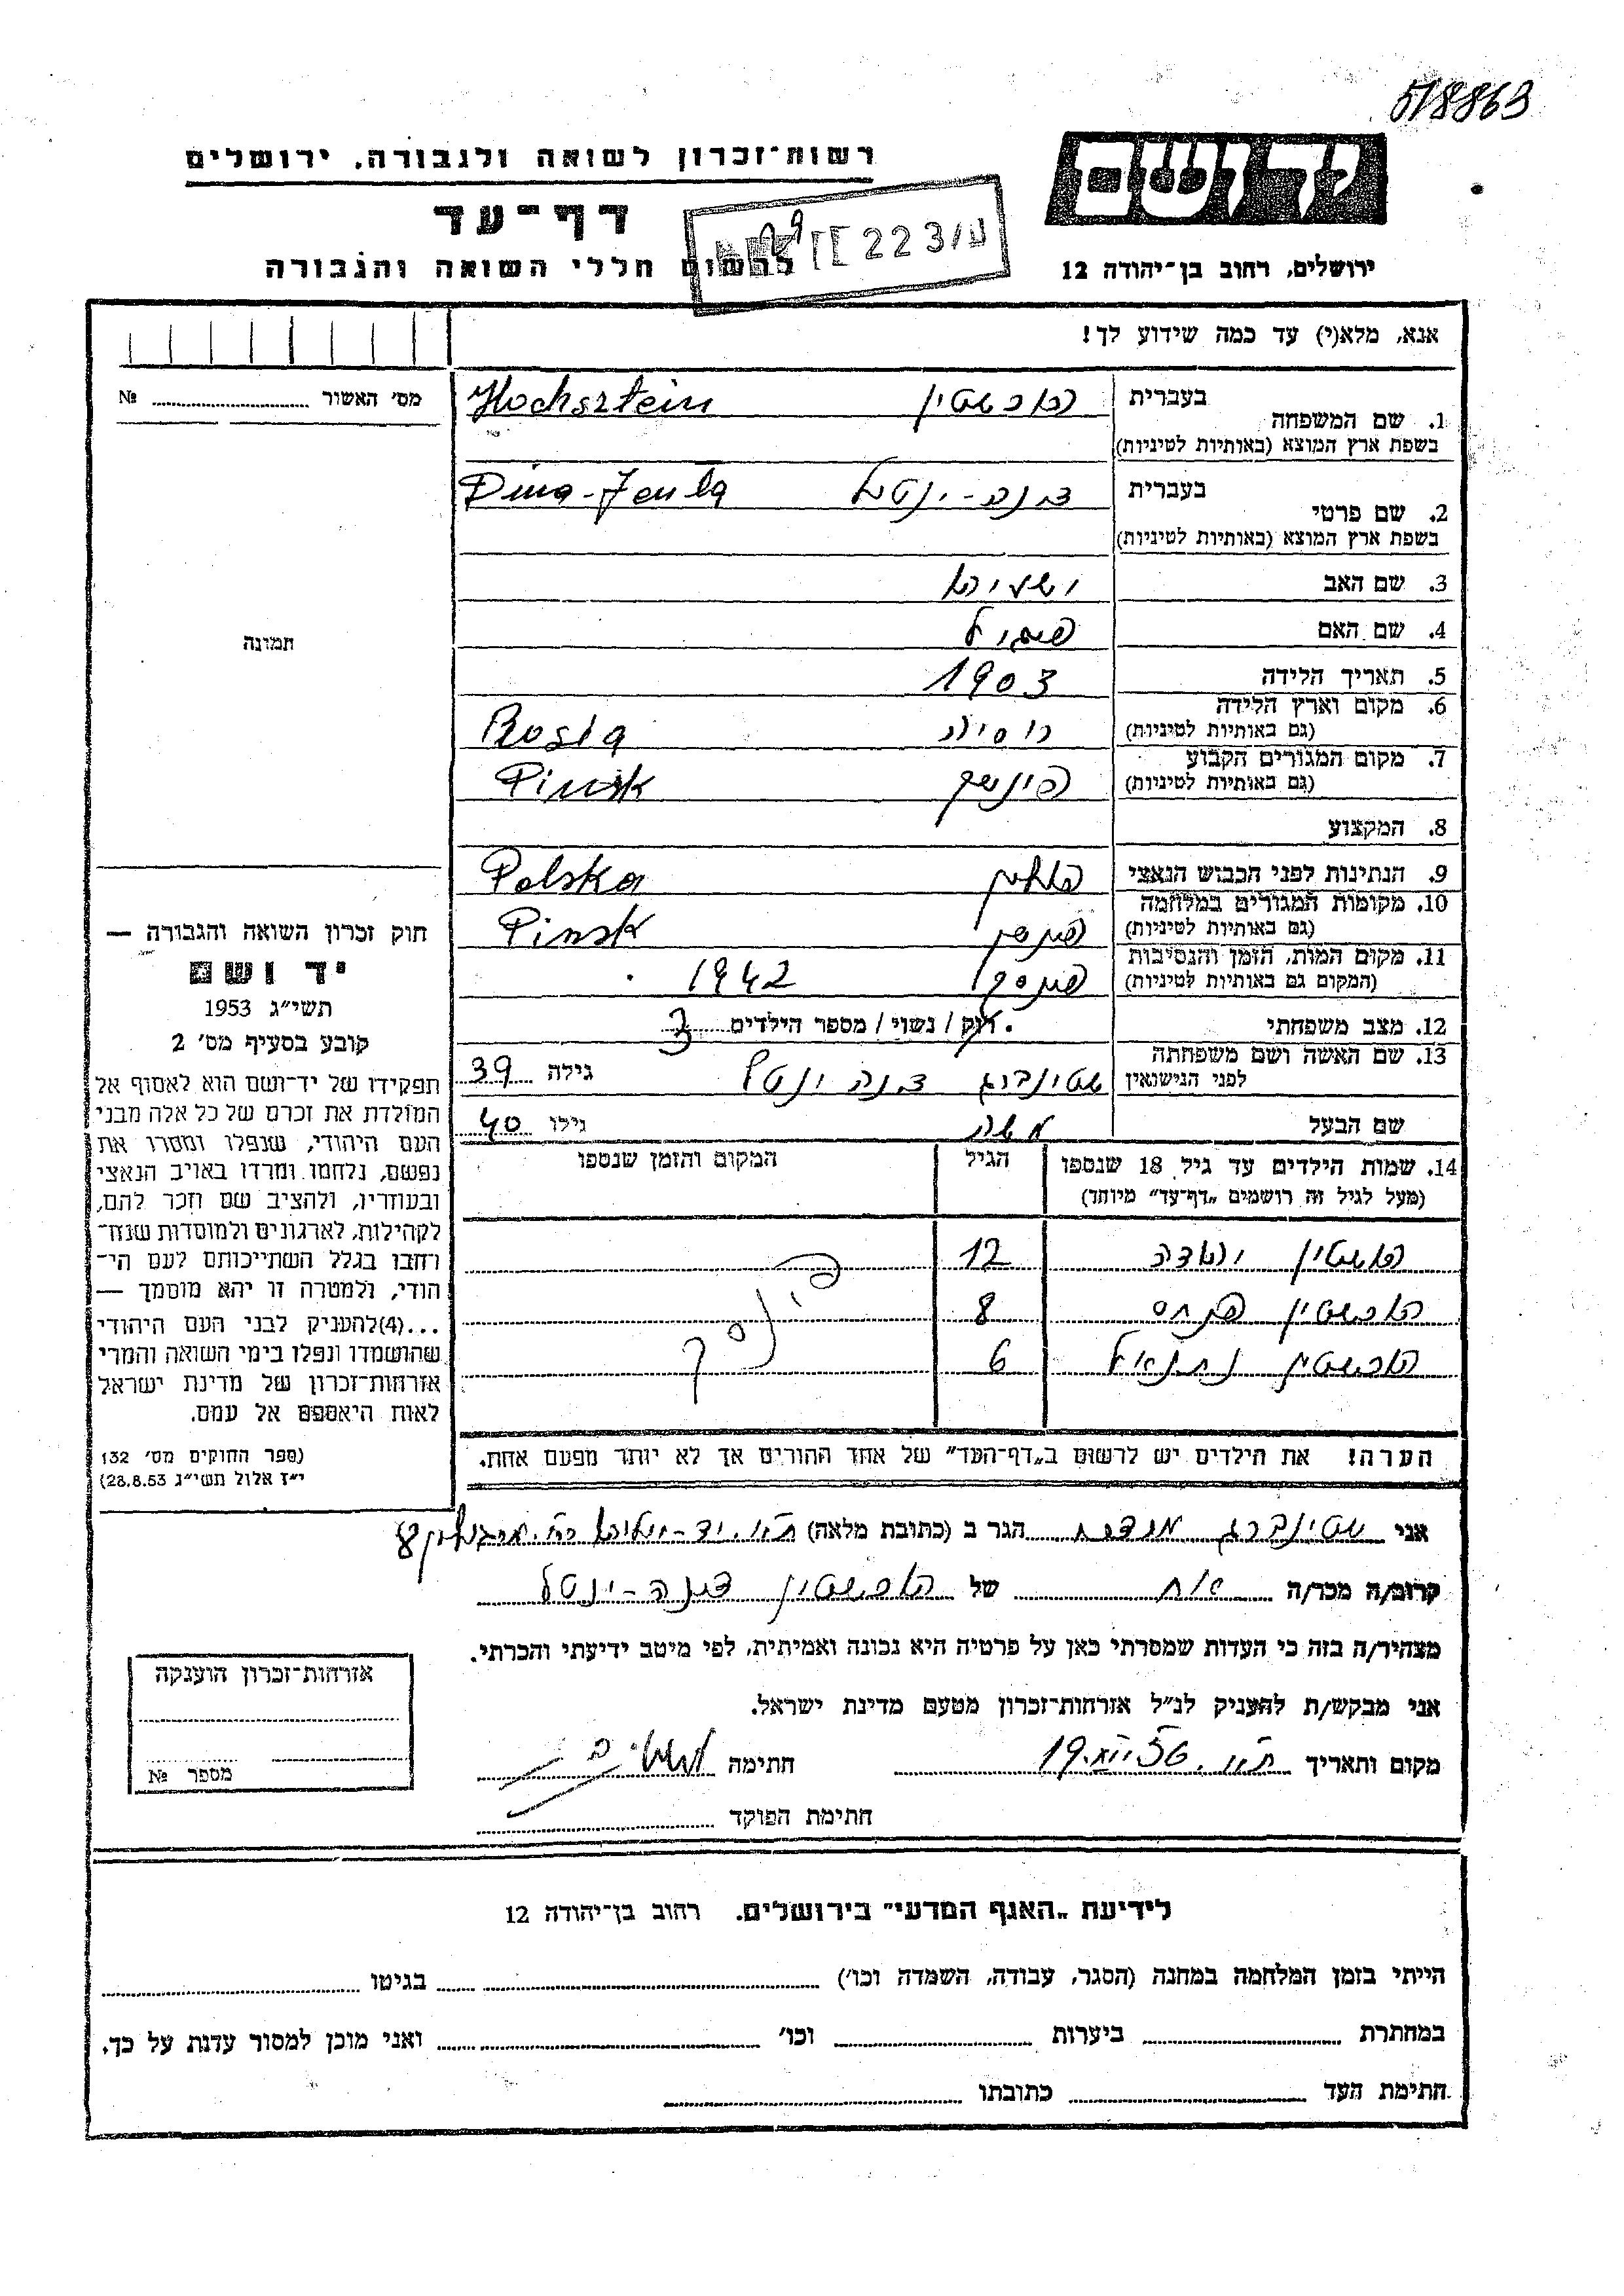 518863
רשות־זכרון לשואה ולגבורה, ירושלים
יד ושם
דף־עד
223/ש
לרשום חללי השואה והגבורה
ירושלים, רחוב בן־יהודה 12
אנא, מלא(י) עד כמה שידוע לך!
מס׳ האשור № 
1. שם המשפחה בעברית הוכשטיין Hochsztein
בשפת ארץ המוצא (באותיות לטיניות)
2. שם פרטי בעברית דינה-ינטל Dina-Jentla
בשפת ארץ המוצא (באותיות לטיניות)
3. שם האב ישעיהו
4. שם האם
תמונה
5. תאריך הלידה 1903
6. מקום וארץ הלידה (גם באותיות לטיניות) רוסיה Rosia
7. מקום המגורים הקבוע (גם באותיות לטיניות) פינסק Pinsk
8. המקצוע
9. הנתינות לפני הכבוש הנאצי פולנית Polska
10. מקומות המגורים במלחמה (גם באותיות לטיניות) פינסק Pinsk
11. מקום המות, הזמן והנסיבות (המקום גם באותיות לטיניות) פינסק 1942
12. מצב משפחתי רוק / נשוי / מספר הילדים 3
13. שם האשה ושם משפחתה לפני הנישואין שטינברג דינה ינטל גילה 39
שם הבעל משה גילו 40
14. שמות הילדים עד גיל 18 שנספו הגיל המקום והזמן שנספו
(מעל לגיל זה רושמים „דף־עד״ מיוחד)
הוכשטיין יהודה 12 פינסק
הוכשטיין פנחס 8
הוכשטיין נתנאל 6
חוק זכרון השואה והגבורה —
יד ושם
תשי״ג 1953
קובע בסעיף מס׳ 2
תפקידו של יד־ושם הוא לאסוף אל
המולדת את זכרם של כל אלה מבני
העם היהודי, שנפלו ומסרו את
נפשם, נלחמו ומרדו באויב הנאצי
ובעוזריו, ולהציב שם וזכר להם,
לקהילות, לארגונים ולמוסדות שנח־
רחבו בגלל השתייכותם לעם הי־
הודי, ולמטרה זו יהא מוסמך —
...(4)להעניק לבני העם היהודי
שהושמדו ונפלו בימי השואה והמרי
אזרחות־זכרון של מדינת ישראל
לאות היאספם אל עמם.
(ספר החוקים מס׳ 132
י״ז אלול תשי״ג 28.8.53)
הערה! את הילדים יש לרשום ב„דף־העד״ של אחד ההורים אך לא יותר מפעם אחת.
אני שטינברג הגר ב (כתובת מלאה) ת״א. יד-אליהו
קרוב/ה מכר/ה אח של הוכשטיין דינה-ינטל
מצהיר/ה בזה כי העדות שמסרתי כאן על פרטיה היא נכונה ואמיתית, לפי מיטב ידיעתי והכרתי.
אני מבקש/ת להעניק לנ״ל אזרחות־זכרון מטעם מדינת ישראל.
מקום ותאריך ת״א חתימה
חתימת הפוקד
אזרחות־זכרון הוענקה
מספר №
לידיעת „האגף המדעי״ בירושלים. רחוב בן־יהודה 12
הייתי בזמן המלחמה במחנה (הסגר, עבודה, השמדה וכו׳) בגיטו
במחתרת ביערות וכו׳ ואני מוכן למסור עדות על כך.
חתימת העד כתובתו